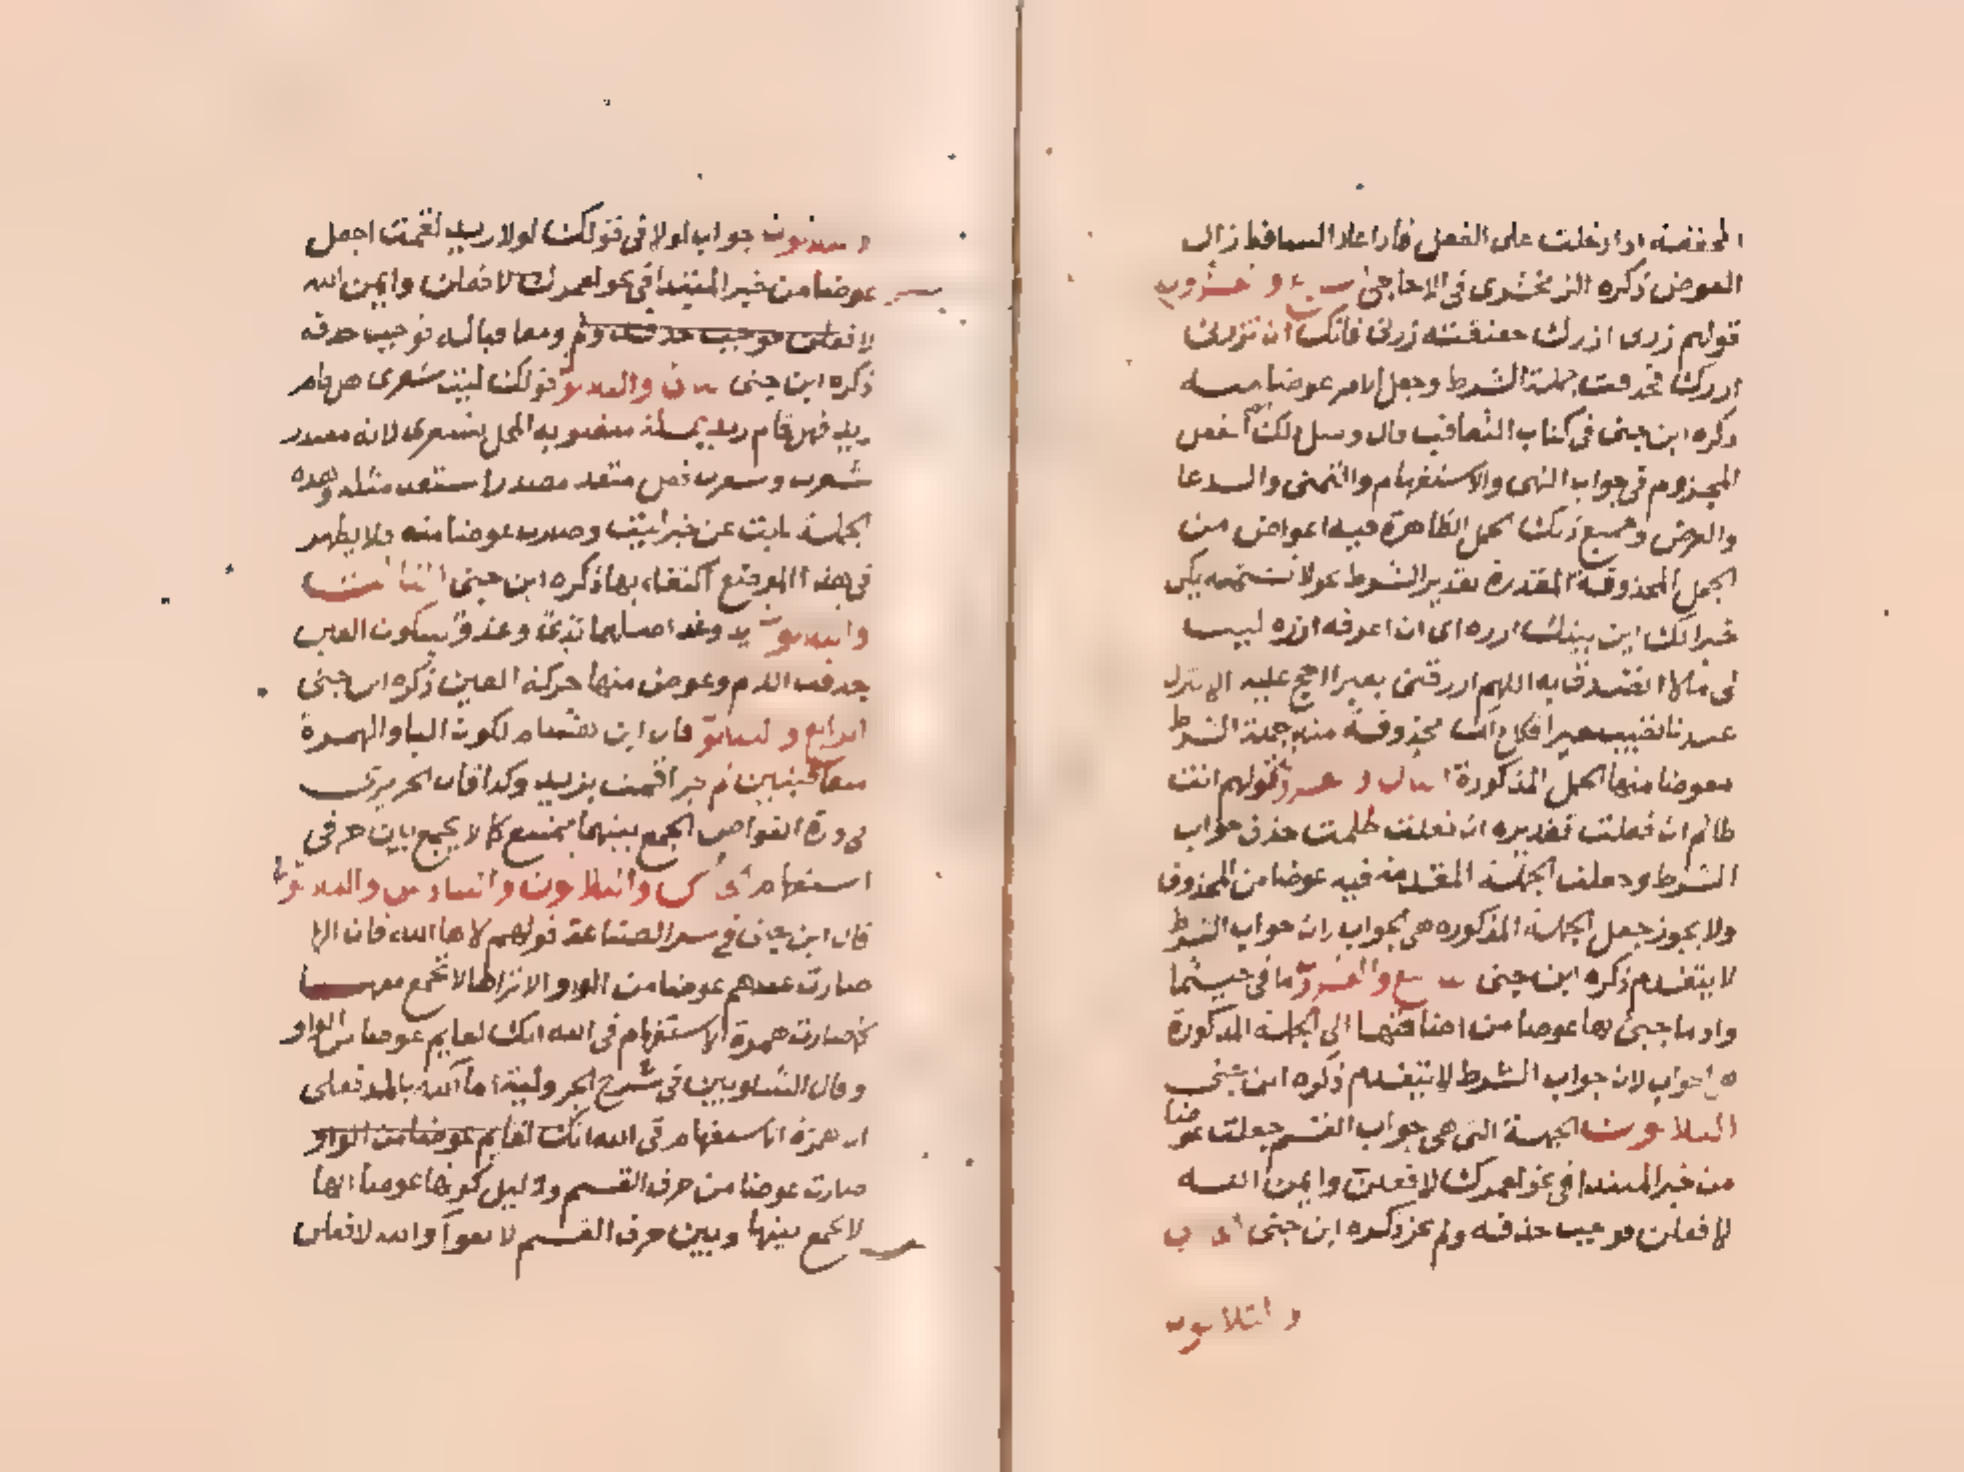 المخففة اذا دخلت على الفعل فاذا عاد الساقط زال
العوض ذكره الزمخشرى فى الاحاجى سابع وعشرون
قولهم زرنى ازرك حقيقته زرنى فانك ان تزرنى
ازرك فحذفت جملة الشرط وجعل الامر عوضا منه
ذكره ابن جنى فى كتاب التعاقب قال ومثل ذلك الفعل
المجزوم فى جواب النهى والاستفهام والتمنى والدعا
والعرض وجميع ذلك الجمل الظاهرة فيه اعواض من
الجمل المحذوفة المقدرة بتقدير الشرط نحو لا تشتمه يكن
خيرا لك اين بيتك ازره اى ان اعرفه ازره ليت
لى مالا اتصدق به اللهم ارزقنى بعيرا احج عليه الا تنزل
عندنا تصيب خيرا فكل ذلك محذوفة منه جملة الشرط
معوضا منها الجمل المذكورة الثامن وعشرون قولهم انت
ظالم ان فعلت تقديره ان فعلت ظلمت حذف جواب
الشرط وجعلت الجملة المقدمة فيه عوضا من المحذوف
ولا يجوز جعل الجملة المذكورة هى الجواب لان جواب الشرط
لا يتقدم ذكره ابن جنى التاسع والعشرون ما فى حيثما
واذما جىء بها عوضا من اضافتها الى الجملة المذكورة
هى الجواب لان جواب الشرط لا يتقدم ذكره ابن جنى
الثلاثون الجملة التى هى جواب القسم جعلت عوضا
من خبر المبتدا فى نحو لعمرك لافعلن وايمن الله
لافعلن فوجب حذفه ولم يجز ذكره ابن جنى الحادى
والثلاثون
والثلاثون جواب لولا فى قولك لولا زيد لقمت اجعل
عوضا من خبر المبتدا فى نحو لعمرك لافعلن وايمن الله
لافعلن فوجب حذفه ولم ومعاقبا له فوجب حذفه
ذكره ابن جنى الثانى والثلاثون قولك ليت شعرى هل قام
زيد فهل قام زيد جملة منصوبه المحل بشعرى لانه مصدر
شعرت وشعرت فعل متعد فمصدره متعد مثله وهذه
الجملة نابت عن خبر ليت وصارت عوضا منه فلا يظهر
فى هذا الموضع اكتفاء بها ذكره ابن جنى الثالث
والثلاثون يد وغد اصلهما يدى وغدو بسكون العين
حذفت اللام وعوض منها حركة العين ذكره ابن جنى
الرابع والثلاثون قال ابن هشام لكون البا والهمزة
متعاقبتين لم يجز اقمت بزيد وكذا قال الحريرى
فى درة الغواص الجمع بينهما ممتنع كما لا يجمع بين حرفى
استفهام الخامس والثلاثون والسادس والثلاثون
قال ابن جنى فى سر الصناعة قولهم لا ها الله فان الها
صارت عندهم عوضا من الواو الا تراها لا تجتمع معها
كما صارت همزة الاستفهام فى الله انك لقايم عوضا من الواو
وقال الشلوبين فى شرح الجزولية اما آلله بالمد فعلى
ان همزة الاستفهام فى الله انك لقايم عوضا من الواو
صارت عوضا من حرف القسم ودليل كونها عوضا انها
لا يجمع بينها وبين حرف القسم لا تقول أوالله لافعلن